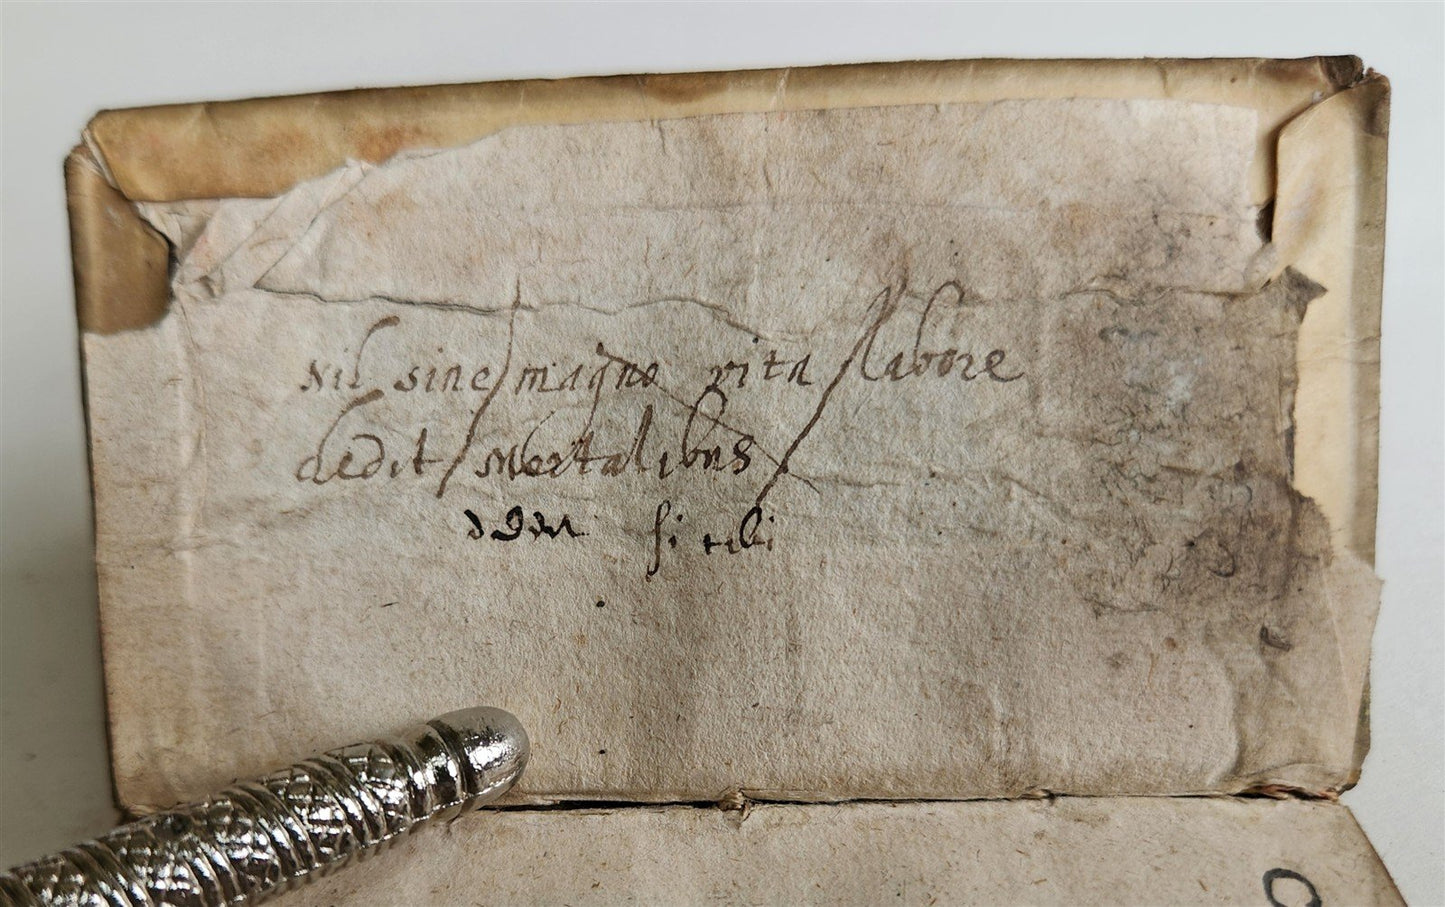 Nil sine magno vita labore
dedit Mortalibus
si tibi